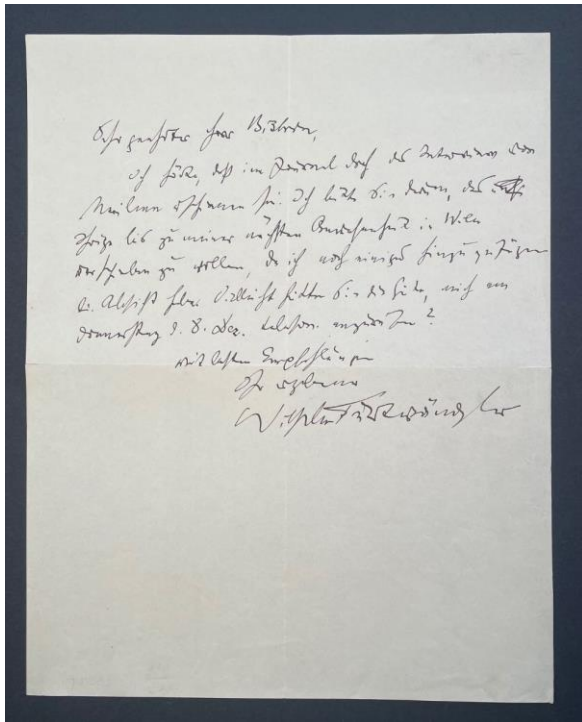 Sehr geehrter Herr
Ich höre, daß im Journal doch das Interview von
erschienen sei. Ich bitte Sie darum, das
Ihrige bis zu meiner nächsten Anwesenheit in Wien
verschieben zu wollen, da ich noch einiges hinzuzufügen
die Absicht habe. Vielleicht hätten Sie die Güte, mich am
Donnerstag d. 8. Dez. telefon. anzurufen?
Mit besten Empfehlungen
Ihr ergebener
Wilhelm Furtwängler